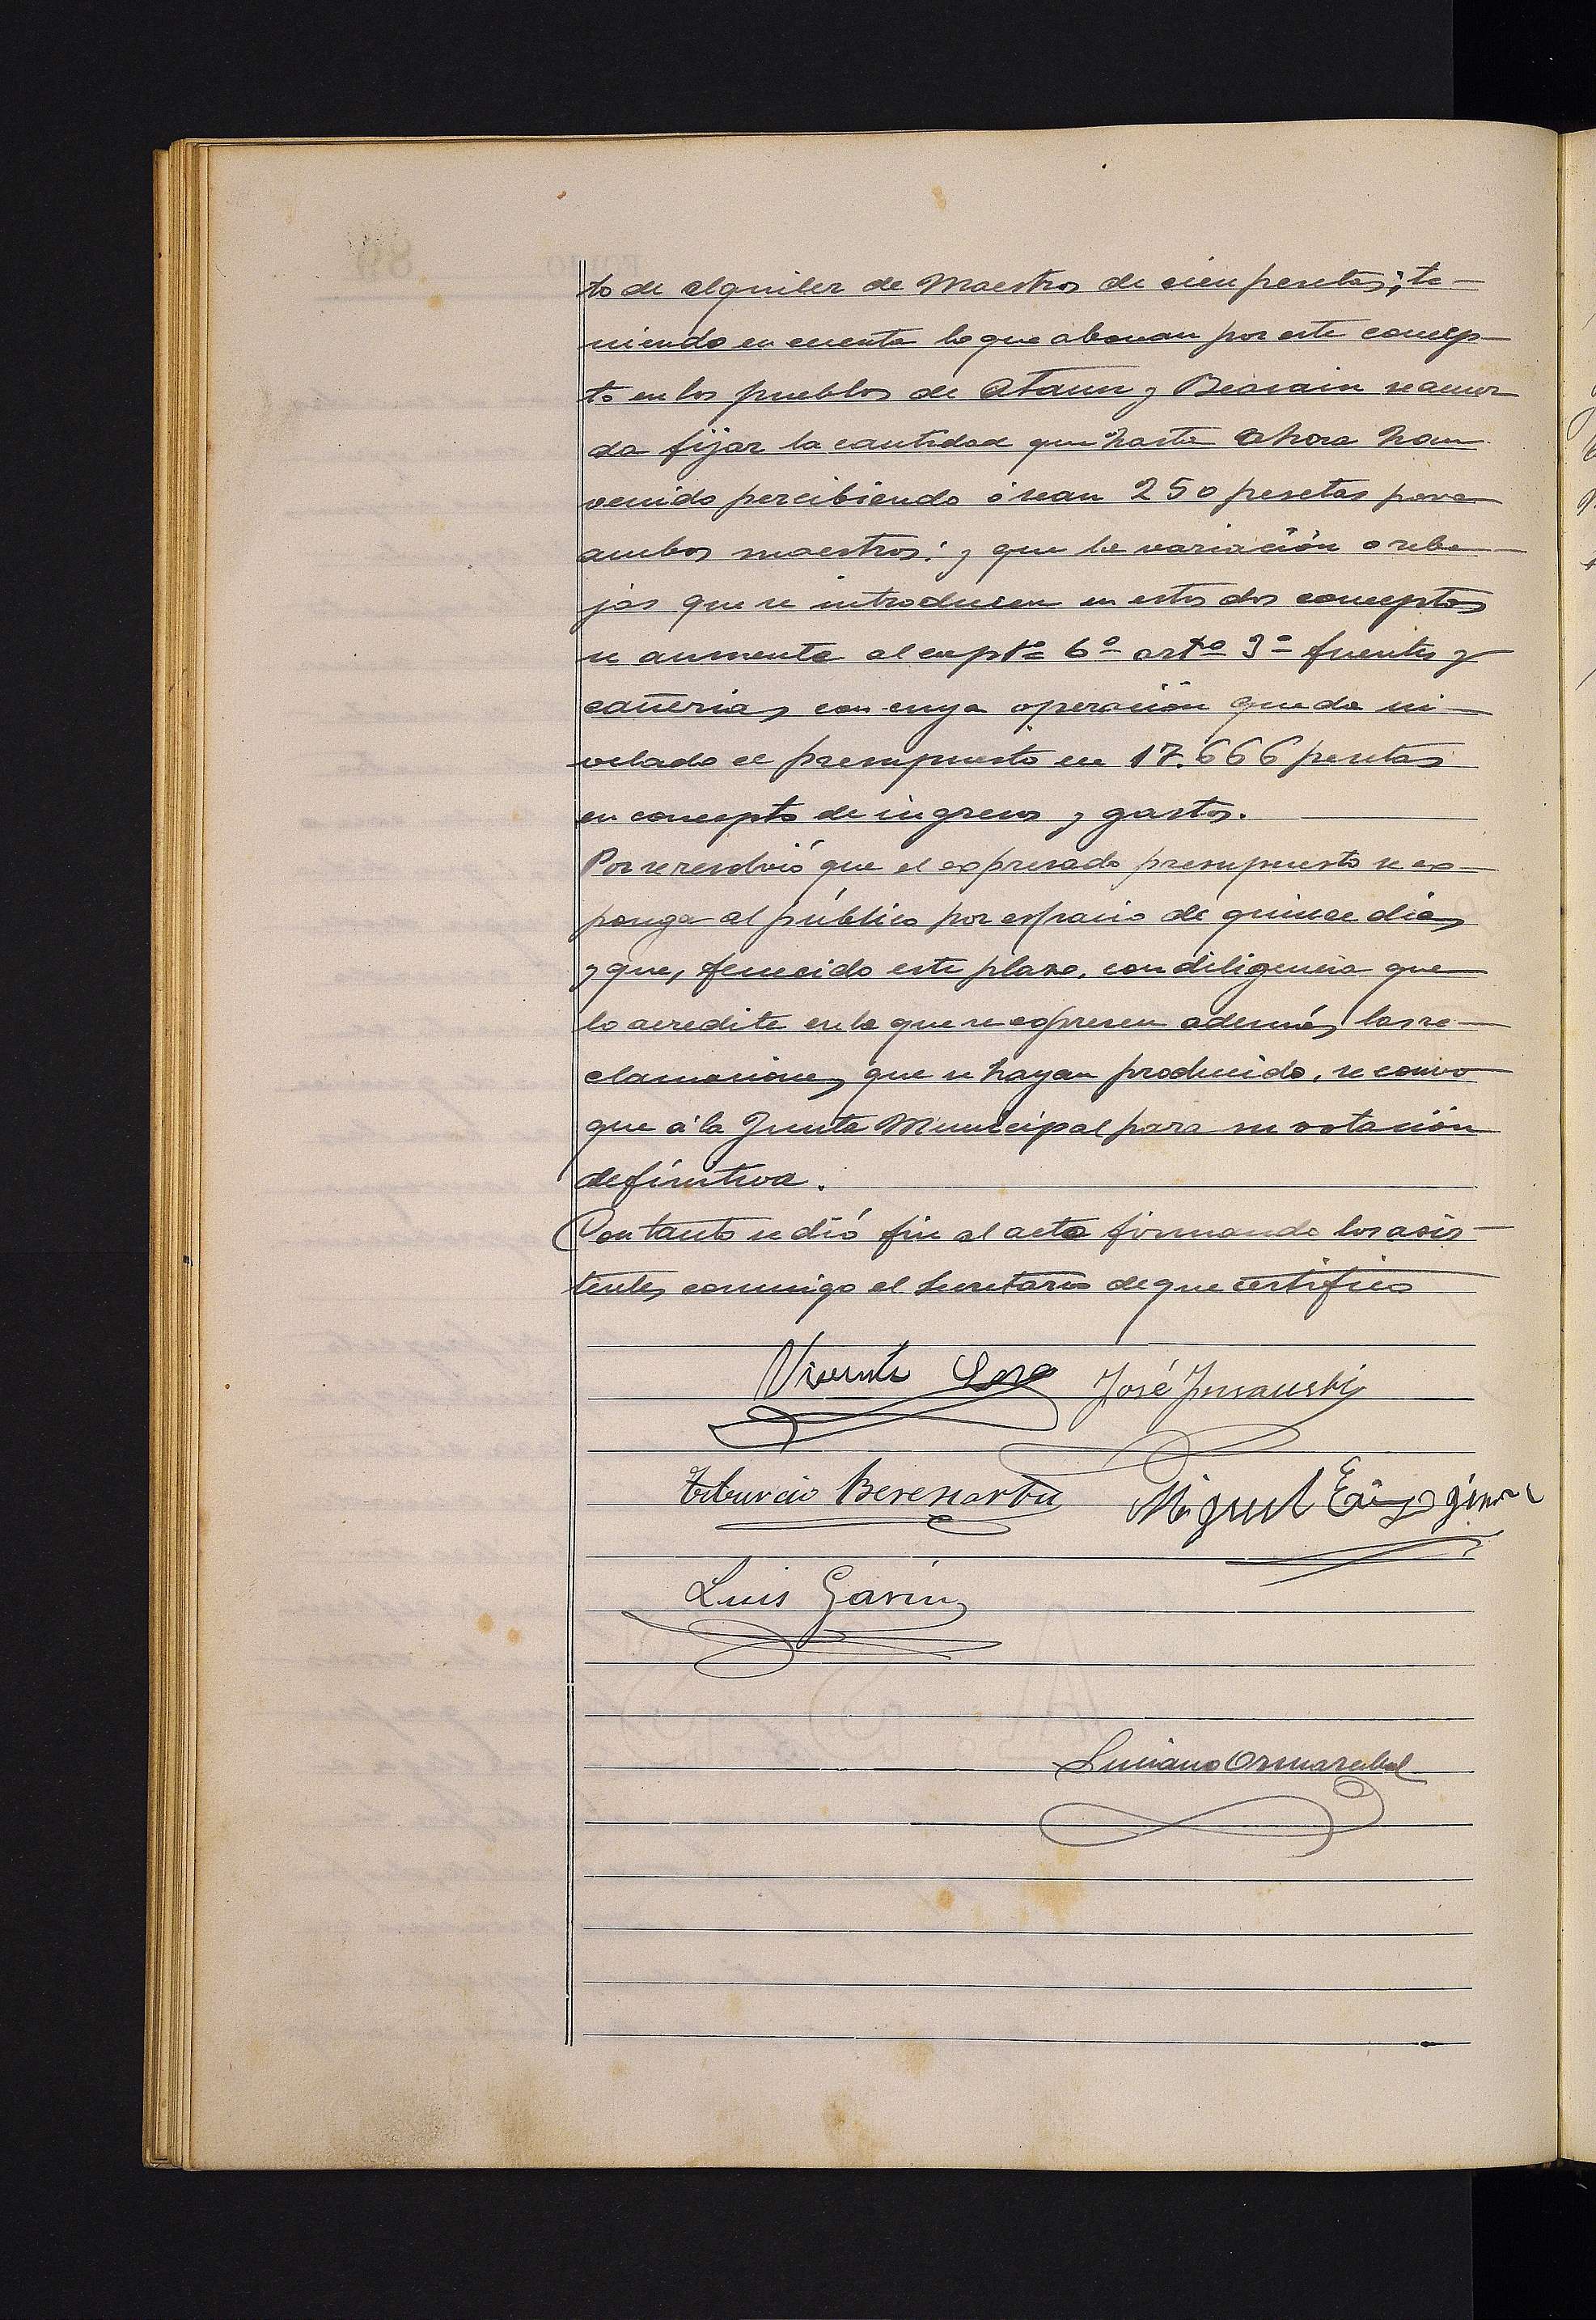 to de alquiler de Maestros de cien pesetas; te-
niendo en cuenta lo que abonan por este concep-
to en los pueblos de Ataun y Beasain se acuer
da fijar la cantidad que hasta ahora han
venido percibiendo ó sean 250 pesetas para
ambos maestros: y que la variación o reba-
jas que se introducen en estos dos conceptos
se aumente al cap.tº 6º artº 3º fuentes y
cañerias con cuya operación queda ni-
velado el presupuesto en 17.666 pesetas
en concepto de ingresos y gastos.
Por se resolvió que el expresado presupuesto se ex-
ponga al público por espacio de quince dias
y que, fenecido este plazo, con diligencia que
lo acredite en la que se expresen además las re-
clamaciones que se hayan producido, se convo
que á la Junta Municipal para su votación
definitiva.
Con tanto se dió fin al acta firmando los asis-
tentes conmigo el Secretario de que certifico
Vicente Lasa José Insausti
Tiburcio Berenartu Miguel
Luis Garin
Luciano Ormazabal